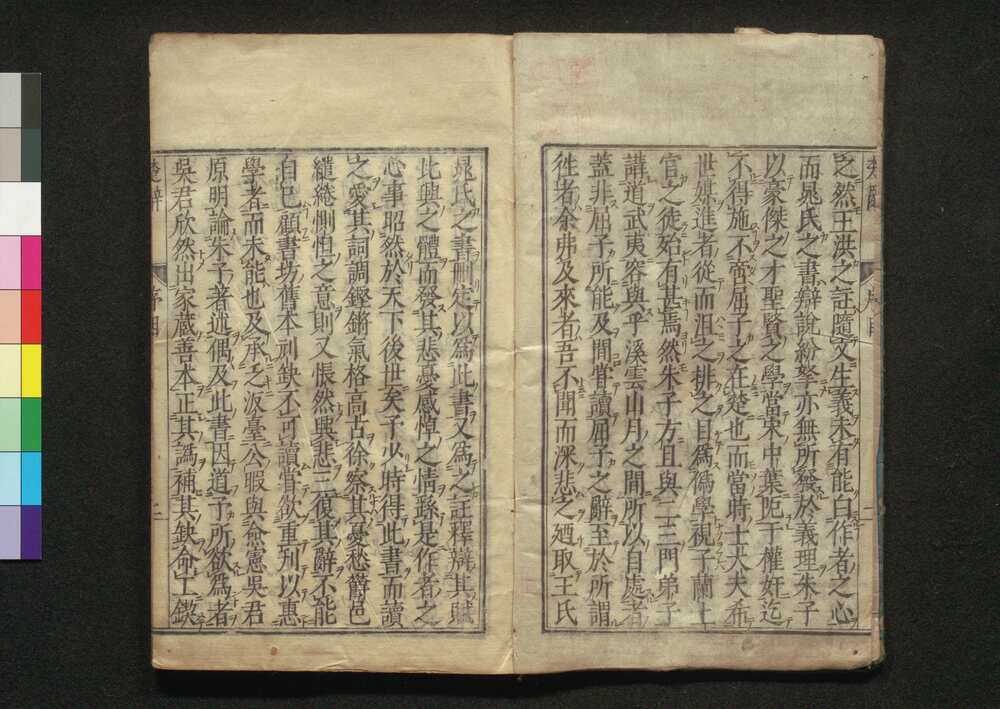 之然王洪之註隨文生義未有能白作者之心
而晁氏之書辯說紛拏亦無所發於義理朱子
以豪傑之才聖賢之學當宋中葉阨于權奸迄
不得施不啻屈子之在楚也而當時士大夫希
世媒進者從而沮之排之目爲僞學視子蘭上
官之徒殆有甚焉然朱子方且與二三門弟子
講道武夷容與乎溪雲山月之間所以自處者
蓋非屈子所能及間嘗讀屈子之辭至於所謂
徃者余弗及來者吾不聞而深悲之廼取王氏
晁氏之書刪定以爲此書又爲之註釋辯其賦
比興之體而發其悲憂感悼之情繇是作者之
心事昭然於天下後世矣予少時得此書而讀
之愛其詞調鏗鏘氣格高古徐察其憂愁欝邑
繾綣惻怛之意則又悵然興悲三復其辭不能
自已顧書坊舊本刓缺不可讀嘗欲重刋以惠
學者而未能也及承乏汳臺公暇與僉憲吳君
原明論朱子著述偶及此書因道予所欲爲者
吳君欣然出家蔵善本正其譌補其缺命工鋟
楚辭
序目
二